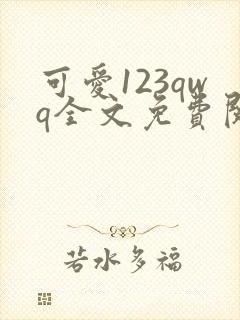 可愛123qw
q全文免費閱
若水多福